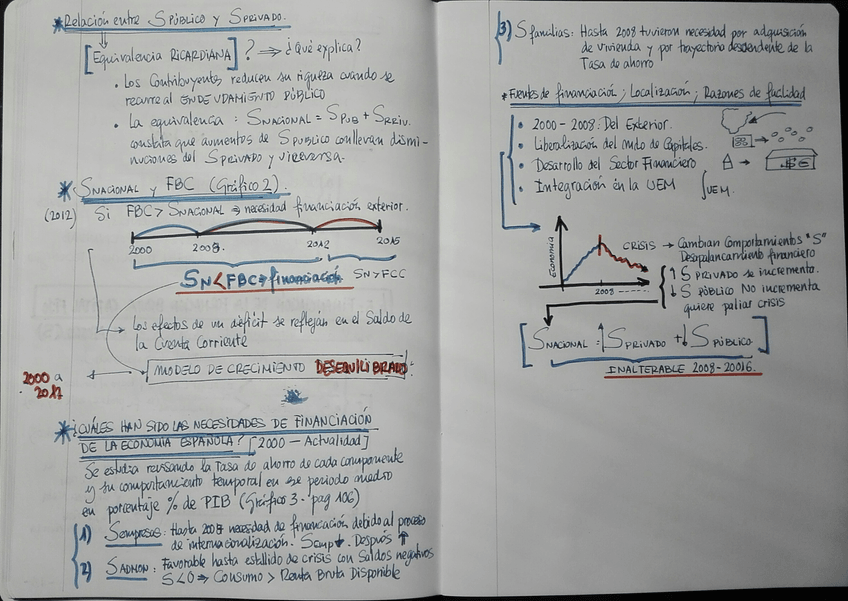 * Relación entre SPÚBLICO y SPRIVADO.
[EQUIVALENCIA RICARDIANA]? ⇒ ¿Qué explica?
• Los Contribuyentes reducen su riqueza cuando se
recurre al ENDEUDAMIENTO PÚBLICO
• La equivalencia: SNACIONAL = SPUB + SPRIV.
constata que aumentos de SPUBLICO conllevan dismi-
nuciones del SPRIVADO y viceversa.
* SNACIONAL y FBC (Gráfico 2).
(2012) Si FBC > SNACIONAL ⇒ necesidad financiación exterior.
2000 2008. 2012 2015
SN<FBC⇒financiación SN>FCC
Los efectos de un déficit se reflejan en el Saldo de
la Cuenta Corriente
2000 a MODELO DE CRECIMIENTO DESEQUILIBRADO
2012
* ¿CUÁLES HAN SIDO LAS NECESIDADES DE FINANCIACIÓN
DE LA ECONOMIA ESPAÑOLA? [2000 – Actualidad]
Se estudia revisando la Tasa de ahorro de cada componente
y su comportamiento temporal en ese periodo medio
en porcentaje % de PIB (Gráfico 3 - pag 106)
1) Sempresas: Hasta 2008 necesidad de financiación debido al proceso
de internacionalización. Semp↓. Después ↑
2) SADMON: Favorable hasta estallido de crisis con Saldos negativos
S<0 ⇒ Consumo > Renta Bruta Disponible
3) Sfamilias: Hasta 2008 tuvieron necesidad por adquisición
de vivienda y por trayectoria descendente de la
Tasa de ahorro
* Fuentes de financiación; Localización; Razones de facilidad
• 2000 – 2008: Del Exterior.
• Liberalización del Mdo de Capitales.
• Desarrollo del Sector Financiero
• Integración en la UEM
UEM
Economía
2008
CRISIS → Cambian Comportamientos "S"
Desapalancamiento financiero
↑ S PRIVADO se incremento.
↓ S PÚBLICO No incrementa
quiere paliar crisis
[SNACIONAL = ↑SPRIVADO + ↓SPÚBLICO]
INALTERABLE 2008-20016.